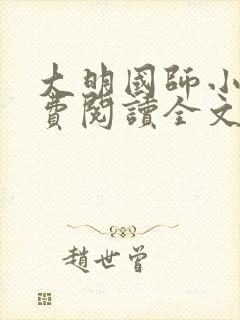 大明國師小
費閱讀全文
趙世曾